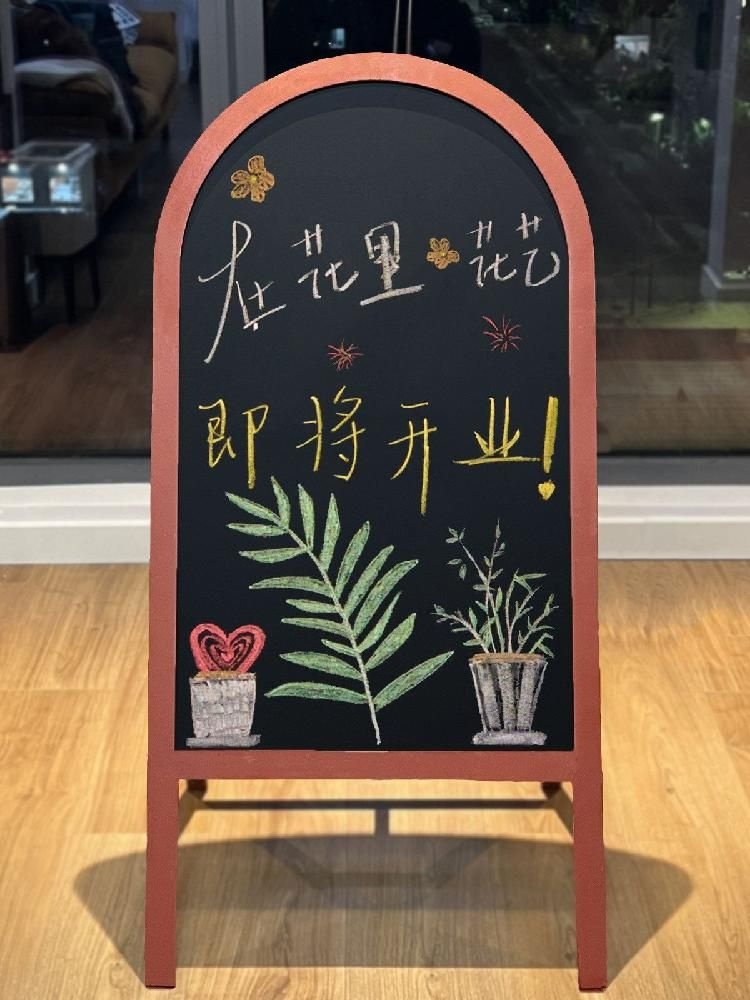 在花里 花艺
即将开业!